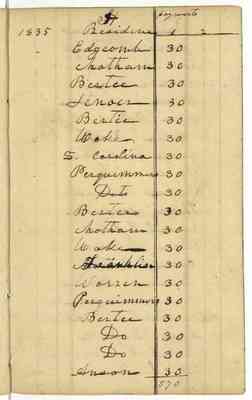 1835 Residence
Edgecomb 30
Chatham 30
Bertee 30
Lenoir 30
Bertie 30
Wake 30
S. Carolina 30
Perquimmons 30
Do 30
Bertee 30
Chatham 30
Wake 30
Franklin 30
Warren 30
Perquimmons 30
Bertee 30
Do 30
Do 30
Anson 30
570